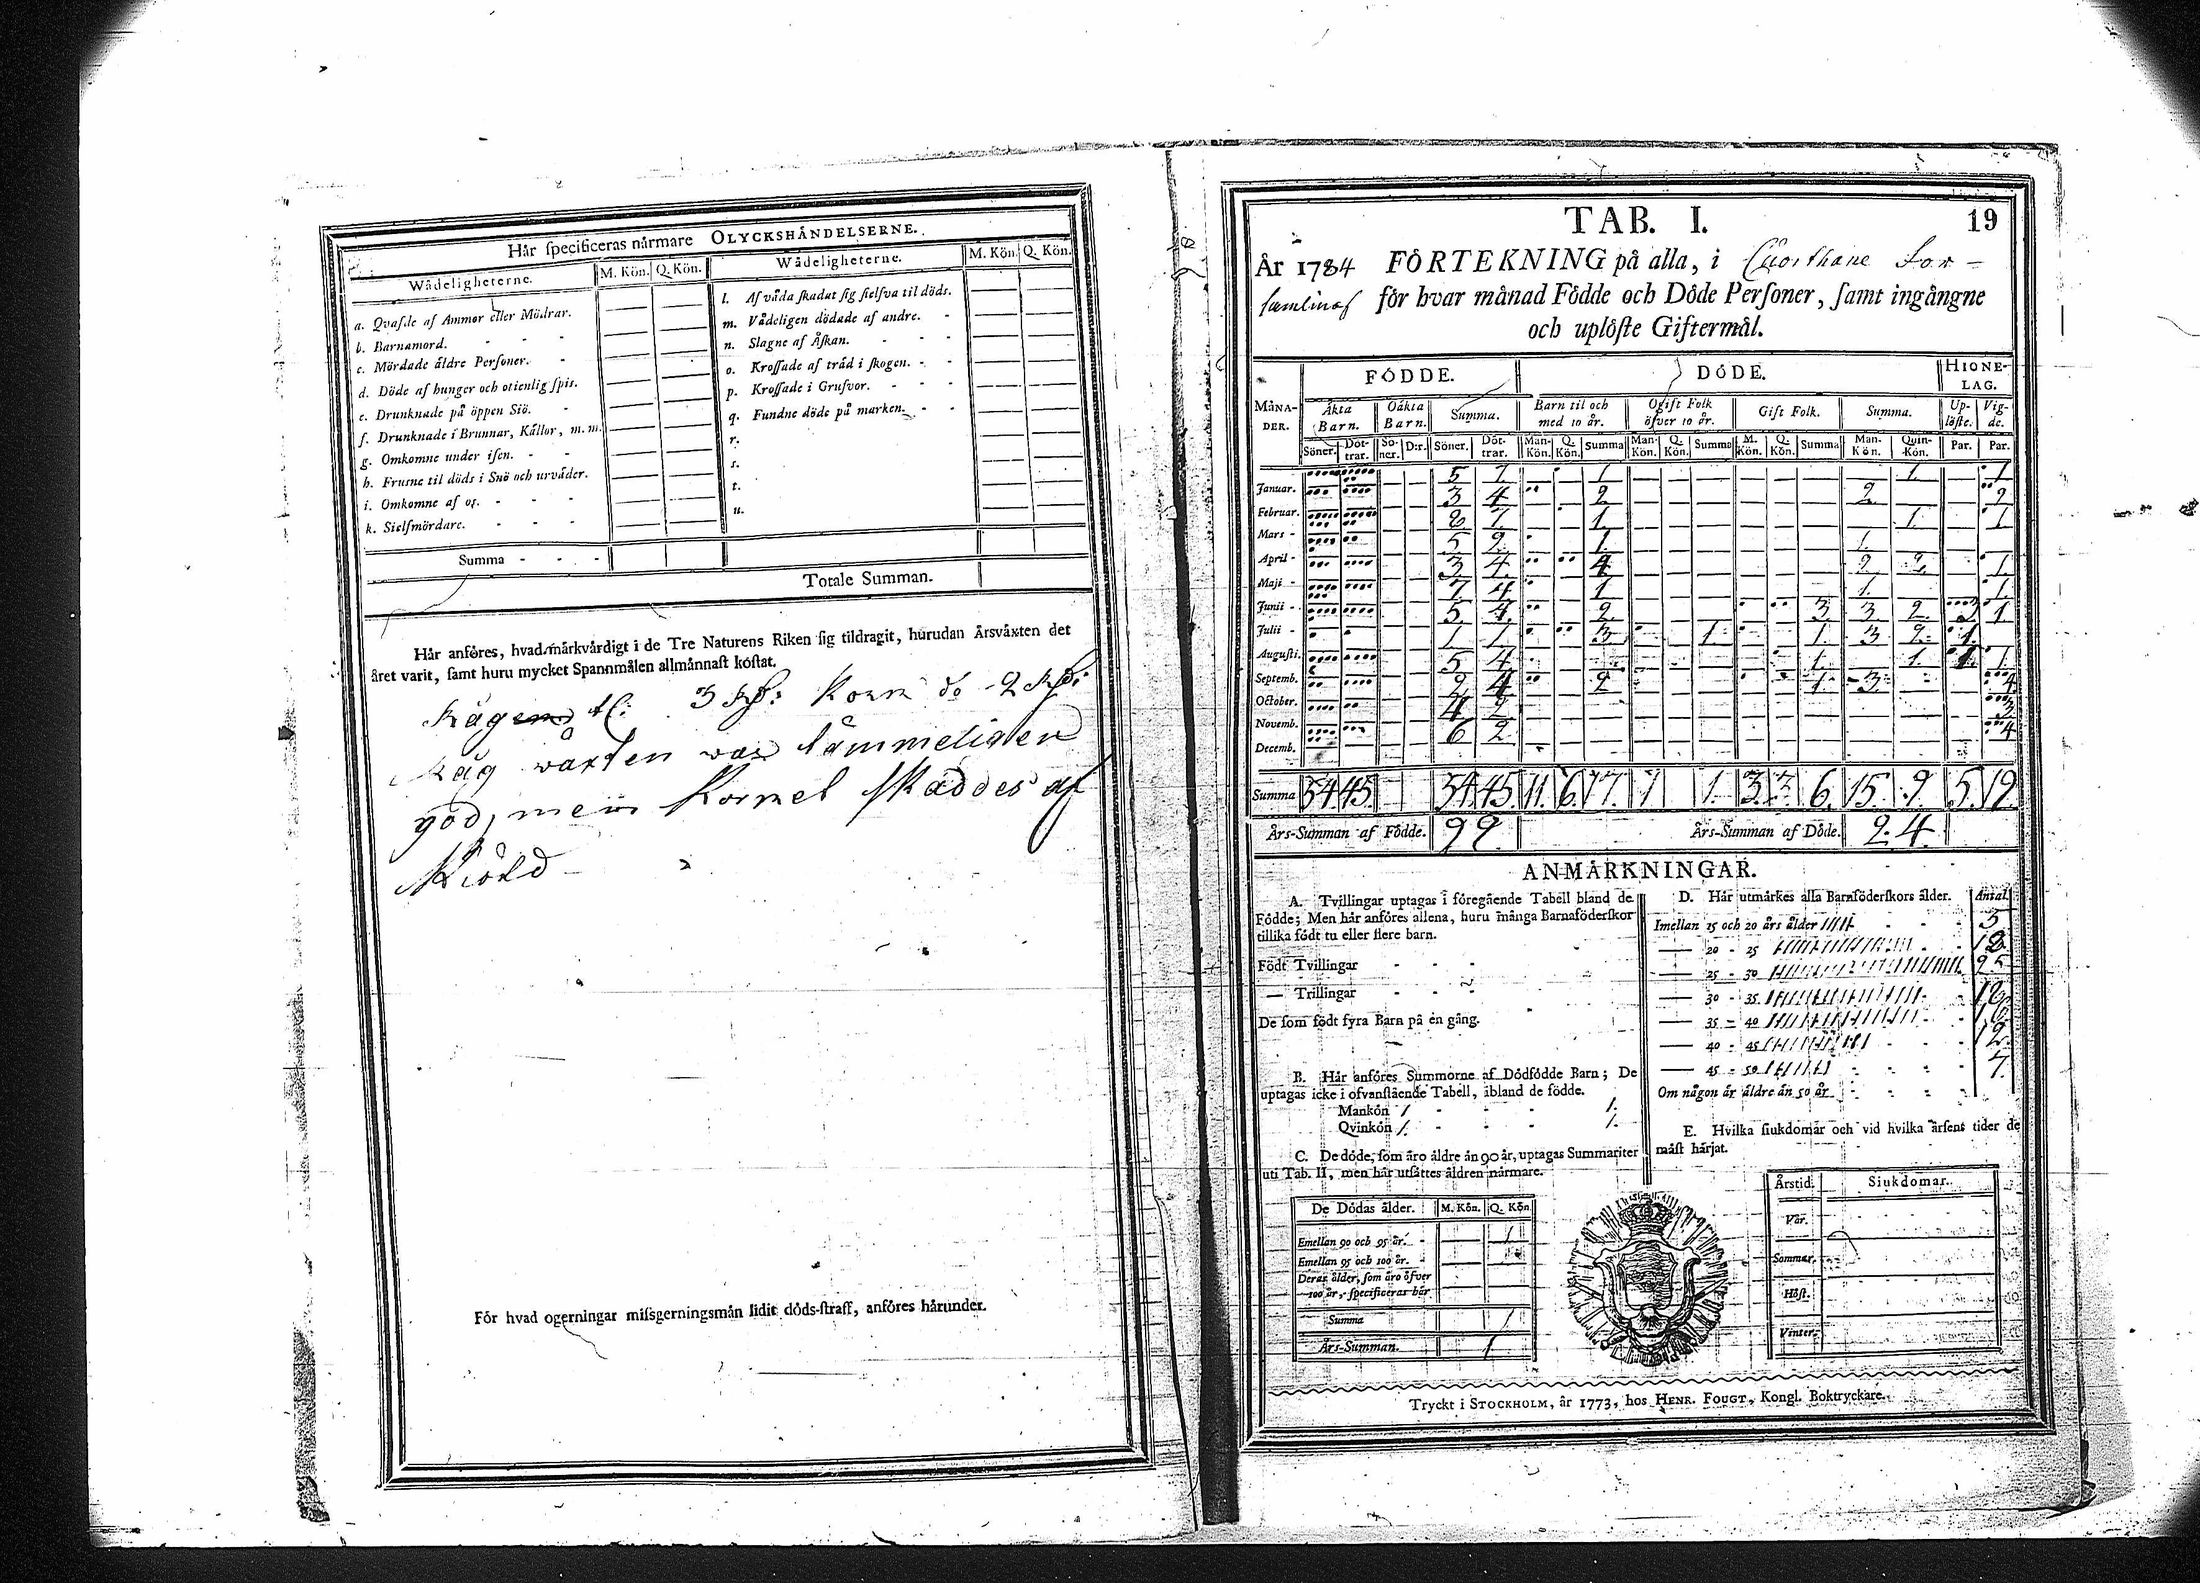 Hår specificeras nårmare OLYCKSHÅNDELSERNE.
Wådeligheterne. M. Kön. Q. Kön. Wådeligheterne. M. Kön. Q. Kön.
a. Qvafde af Ammor eller Mödrar.
b. Barnamord. - - -
c. Mördade äldre Personer. -
d. Döde af hunger och otienlig spis.
e. Drunknade på öppen Siö. -
f. Drunknade i Brunnar, Källor, m. m.
g. Omkomne under isen. - -
h. Frusne til döds i Snö och urväder.
i. Omkomne af os. - - -
k. Sielfmördare. - - -
l. Af våda skadat sig sielfva til döds.
m. Vådeligen dödade af andre. -
n. Slagne af Åskan. - - -
o. Krossade af träd i skogen. -
p. Krossade i Grufvor. - - -
q. Fundne döde på marken. - -
r.
s.
t.
u.
Summa - - -
Totale Summan.
Hår anföres, hvad mårkvårdigt i de Tre Naturens Riken sig tildragit, hurudan Årsvåxten det
året varit, samt huru mycket Spannmålen allmånnast kostat.
Råg 3 Korn do 2
Råg waxten war tämmeligen
god, men Kornet skaddes af
Kiöld
För hvad ogerningar missgerningsmån lidit döds-straff, anföres hårunder.
TAB. I. 19
År 1784 FÖRTEKNING på alla, i Cuorthane För-
samling för hvar månad Födde och Döde Personer, samt ingångne
och uplöste Giftermål.
MÅNA-DER. FÖDDE. DÖDE. HIONE-LAG.
Åkta Barn. Oåkta Barn. Summa. Barn til och med 10 år. Ogift Folk öfver 10 år. Gift Folk. Summa. Up-löste. Vig-de.
Söner. Döt-trar. Sö-ner. D:r. Söner. Döt-trar. Man-Kön. Q. Kön. Summa Man-Kön. Q. Kön. Summa M. Kön. Q. Kön. Summa Man-Kön. Quin-Kön. Par. Par.
Januar. 5 7 1 1 1
Februar. 3 4 2 2 2
Mars - 8 7 1 1 1
April - 5 2 1 1
Maji - 3 4 4 2 2 1
Junii - 7 4 1 1 1
Julii - 5 4 2 3 3 2 3 1
Augusti. 1 1 3 1 1 3 2 1
Septemb. 5 4 1 1 1 1
October. 2 4 2 1 3 4
Novemb. 4 2 3
Decemb. 6 2 4
Summa 54 45 54 45 11 6 17 1 1 3 3 6 15 9 5 19
Års-Summan af Födde. 99 Års-Summan af Döde. 24
ANMÅRKNINGAR.
A. Tvillingar uptagas i föregående Tabell bland de
Födde; Men hår anföres allena, huru många Barnaföderskor
tillika födt tu eller flere barn.
Födt Tvillingar - - -
— Trillingar - - -
De som födt fyra Barn på en gång.
B. Hår anföres Summorne af Dödfödde Barn; De
uptagas icke i ofvanstående Tabell, ibland de födde.
Mankön / - - - 1.
Qvinkön /. - - - 1.
C. De döde, som åro åldre ån 90 år, uptagas Summariter
uti Tab. II, men hår utsåttes åldren nårmare.
De Dödas ålder. M. Kön. Q. Kön.
Emellan 90 och 95 år. - 1
Emellan 95 och 100 år. -
Deras ålder, som åro öfver
100 år, specificeras hår
Summa 1
Års-Summan. 1
D. Hår utmårkes alla Barnföderskors ålder. Antal
Imellan 15 och 20 års ålder 5
— 20 - 25 18
— 25 - 30 25
— 30 - 35
— 35 - 40 16
— 40 - 45 12
— 45 - 50 7
Om någon år åldre ån 50 år
E. Hvilka siukdomar och vid hvilka årsens tider de
måst hårjat.
Årstid. Siukdomar.
Vår.
Sommar.
Höst.
Vinter.
Tryckt i STOCKHOLM, år 1773, hos HENR. FOUGT, Kongl. Boktryckare.